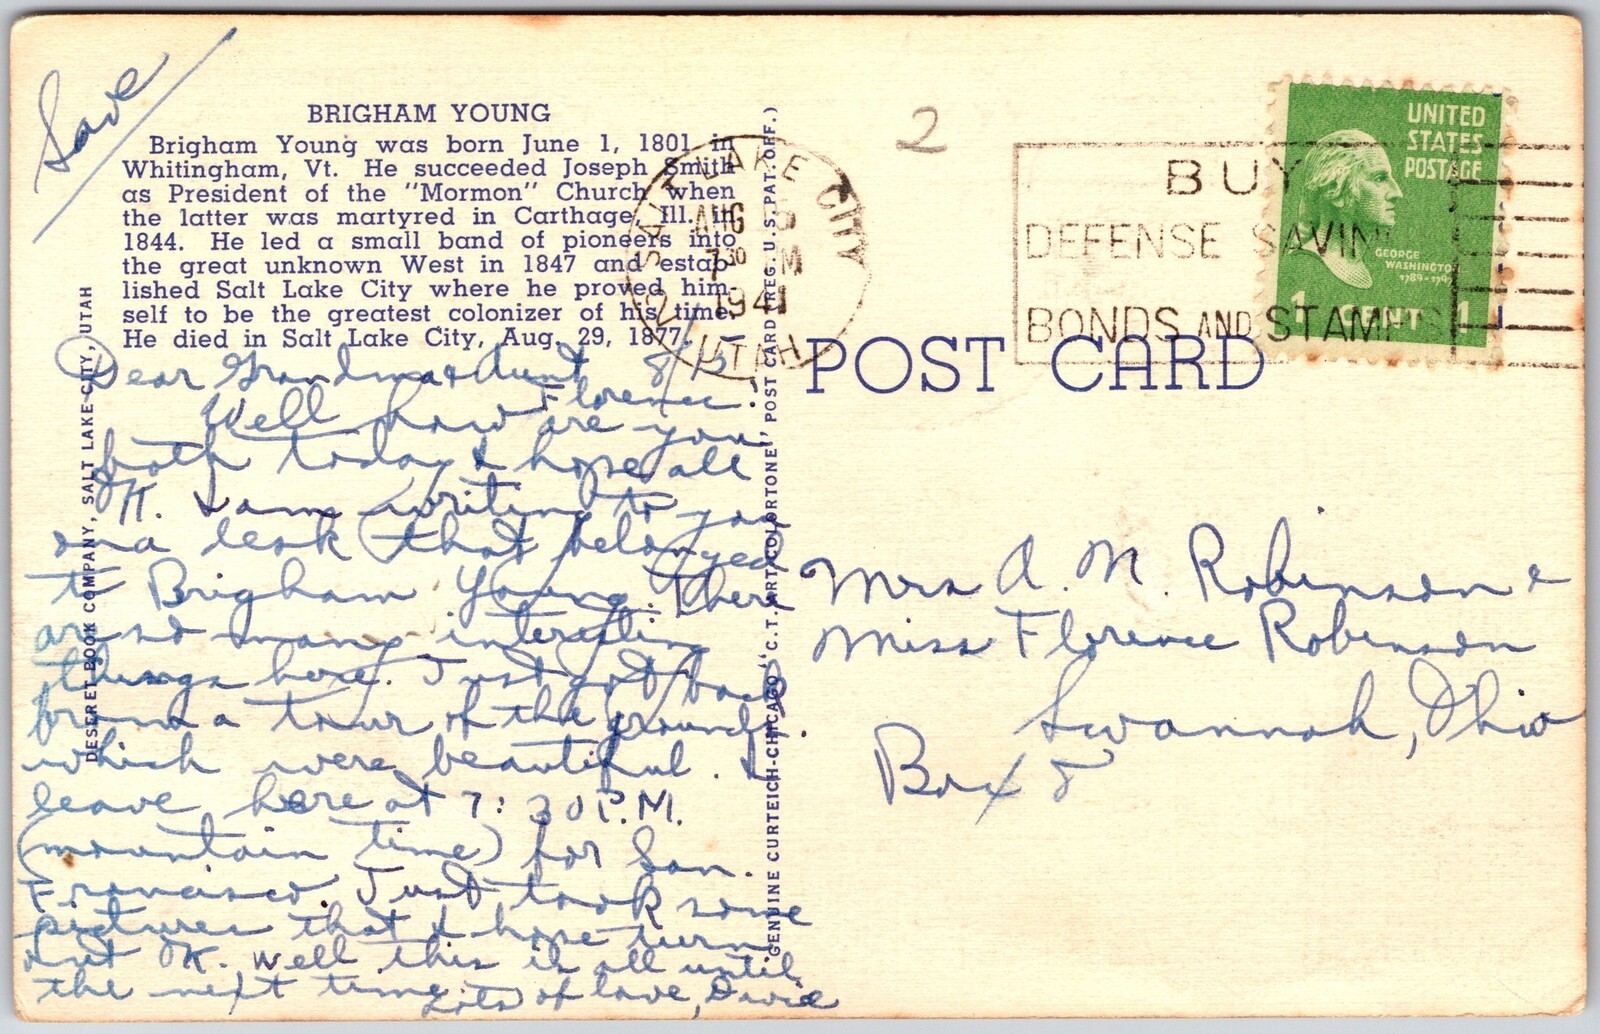 Save
BRIGHAM YOUNG
Brigham Young was born June 1, 1801 in
Whitingham, Vt. He succeeded Joseph Smith
as President of the "Mormon" Church when
the latter was martyred in Carthage, Ill. in
1844. He led a small band of pioneers into
the great unknown West in 1847 and estab-
lished Salt Lake City where he proved him-
self to be the greatest colonizer of his time.
He died in Salt Lake City, Aug. 29, 1877.
Dear Grandma & Aunt 8/5
Florence.
Well how are you
both today I hope all
OK. I am writing to you
on a desk (that belonged
to Brigham Young. There
are so many interesting
things here. Just got back
from a tour of the grounds
which were beautiful. I
leave here at 7:30 P.M.
(mountain time) for San
Francisco. Just took some
pictures that I hope turn
out OK. Well this is all until
the next time.
Lots of love, David
DESERET BOOK COMPANY, SALT LAKE CITY, UTAH
GENUINE CURTEICH-CHICAGO "C.T. ART-COLORTONE" POST CARD (REG. U.S. PAT. OFF.)
SALT LAKE CITY
AUG 5
7 30 PM
1941
UTAH
2
BUY
DEFENSE SAVINGS
BONDS AND STAMPS
UNITED
STATES
POSTAGE
GEORGE
WASHINGTON
1789-1797
1 CENT 1
POST CARD
Mrs A. M. Robinson &
Miss Florence Robinson
Savannah, Ohio
Box 8